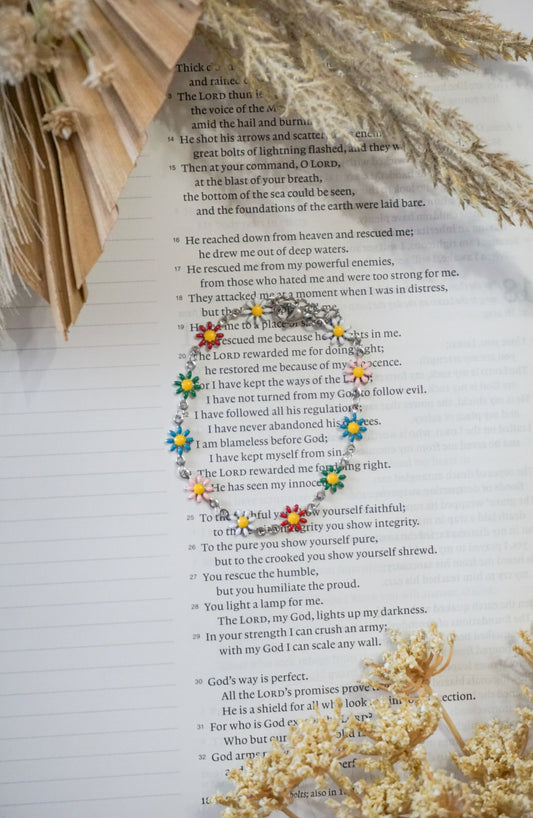 Thick
and rained
The LORD thun
the voice of the
amid the hail and burn
14 He shot his arrows and scatter
great bolts of lightning flashed, and they
15 Then at your command, O LORD,
at the blast of your breath,
the bottom of the sea could be seen,
and the foundations of the earth were laid bare.
16 He reached down from heaven and rescued me;
he drew me out of deep waters.
17 He rescued me from my powerful enemies,
from those who hated me and were too strong for me.
18 They attacked me at a moment when I was in distress,
but the
19 me to a place of
rescued me because he in me.
20 The LORD rewarded me for doing right;
he restored me because of my innocence.
or I have kept the ways of the
I have not turned from my God to follow evil.
I have followed all his regulations;
I have never abandoned his
I am blameless before God;
I have kept myself from sin
The LORD rewarded me for doing right.
He has seen my innocence
25 To the faithful you show yourself faithful;
to integrity you show integrity.
26 To the pure you show yourself pure,
but to the crooked you show yourself shrewd.
27 You rescue the humble,
but you humiliate the proud.
28 You light a lamp for me.
The LORD, my God, lights up my darkness.
29 In your strength I can crush an army;
with my God I can scale any wall.
30 God's way is perfect.
All the LORD's promises prove
He is a shield for all who look protection.
31 For who is God except the LORD?
Who but our
32 God arms
bolts; also in